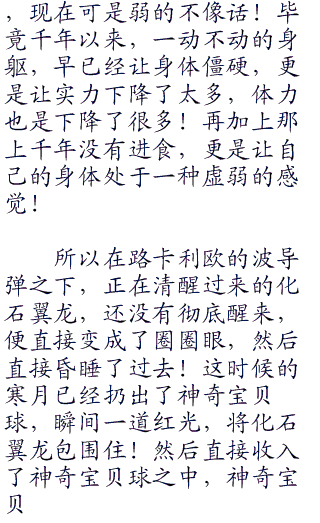 ，现在可是弱的不像话！毕
竟千年以来，一动不动的身
躯，早已经让身体僵硬，更
是让实力下降了太多，体力
也是下降了很多！再加上那
上千年没有进食，更是让自
己的身体处于一种虚弱的感
觉！
所以在路卡利欧的波导
弹之下，正在清醒过来的化
石翼龙，还没有彻底醒来，
便直接变成了圈圈眼，然后
直接昏睡了过去！这时候的
寒月已经扔出了神奇宝贝
球，瞬间一道红光，将化石
翼龙包围住！然后直接收入
了神奇宝贝球之中，神奇宝
贝